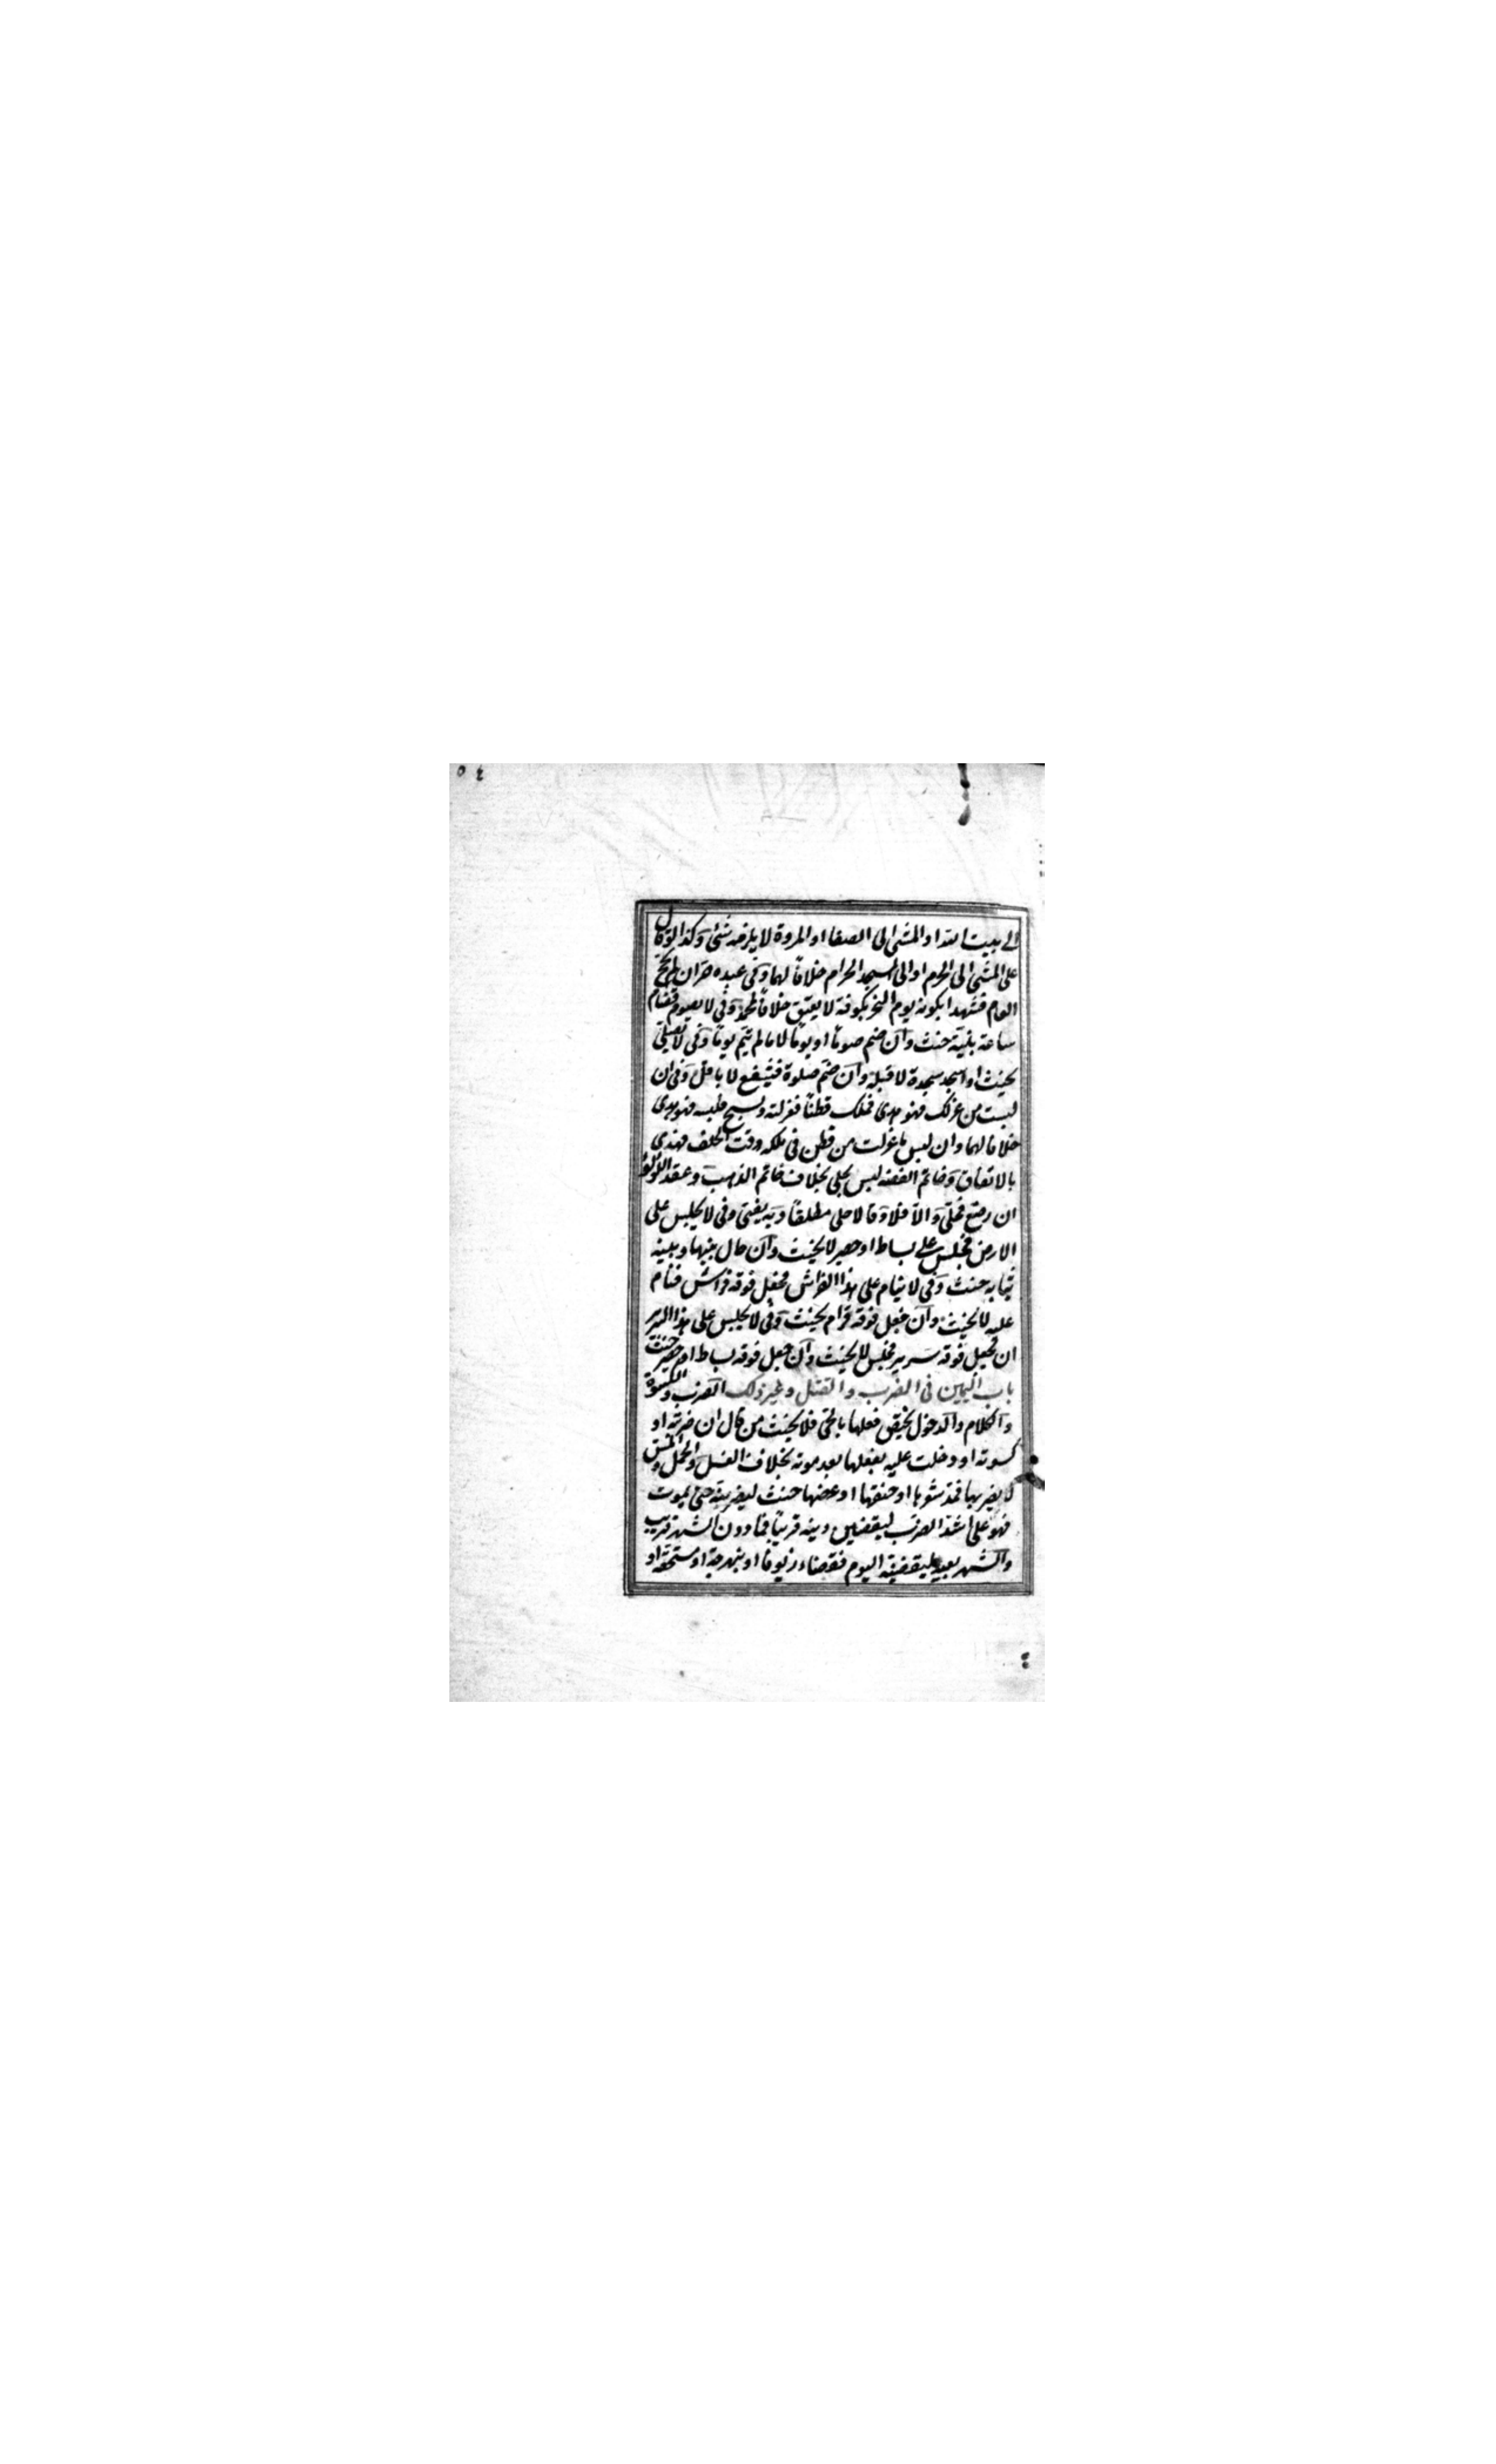 ٥٤
الى بيت الله او المشى الى الصفا او المروة لا يلزمه شئ وكذا لو قال
على المشى الى الحرم او الى المسجد الحرام خلافا لهما وفى عبده حر ان لم يحج
العام فشهدا بكونه يوم النحر بكوفة لا يعتق خلافا لمحمد وفى لا يصوم فصام
ساعة بنية حنث وان ضم صوما او يوما لا ما لم يتم يوما وفى لا يصلى
يحنث اذا سجد سجدة لا قبله وان ضم صلوة فبشفع لا باقل وفى ان
لبست من غزلك فهو هدى فملك قطنا فغزلته ونسج فلبسه فهو هدى
خلافا لهما وان لبس ما غزلت من قطن فى ملكه وقت الحلف فهدى
بالاتفاق وخاتم الفضة ليس بحلى بخلاف خاتم الذهب وعقد اللؤلؤ
ان رصع فحلى والا فلا وقالا حلى مطلقا وبه يفتى وفى لا يجلس على
الارض فجلس على بساط او حصير لا يحنث وان حال بينها وبينه
ثيابه حنث وفى لا ينام على هذا الفراش فجعل فوقه فراش فنام
عليه لا يحنث وان جعل فوقه قرام يحنث وفى لا يجلس على هذا السرير
ان جعل فوقه سرير فجلس لا يحنث وان جعل فوقه بساط او حصير حنث
باب اليمين فى الضرب والقتل وغير ذلك الضرب والكسوة
والكلام والدخول يختص فعلها بالحى فلا يحنث من قال ان ضربته او
كسوته او دخلت عليه بفعلها بعد موته بخلاف الغسل والحمل والمس
لا يضربها فمد شعرها او خنقها او عضها حنث ليضربنه حتى يموت
فهو على اشد الضرب ليقضين دينه قريبا فما دون الشهر قريب
والشهر بعيد ليقضينه اليوم فقضاه زيوفا او بنهرجة او مستحقة او